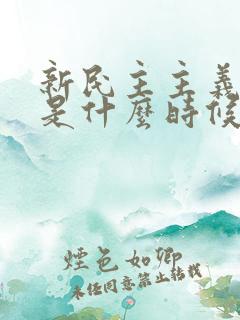 新民主主義
是什麼時候
煙色如卿
未經同意禁止轉載